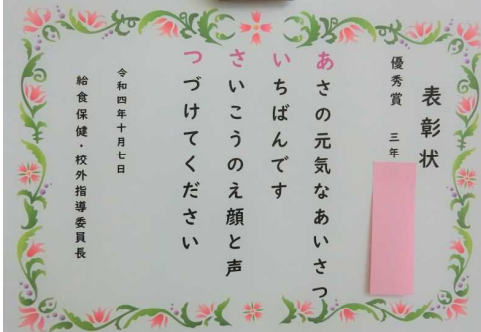 表彰状
優秀賞　三年
あさの元気なあいさつ
いちばんです
さいこうのえ顔と声
つづけてください
令和四年十月七日
給食保健・校外指導委員長